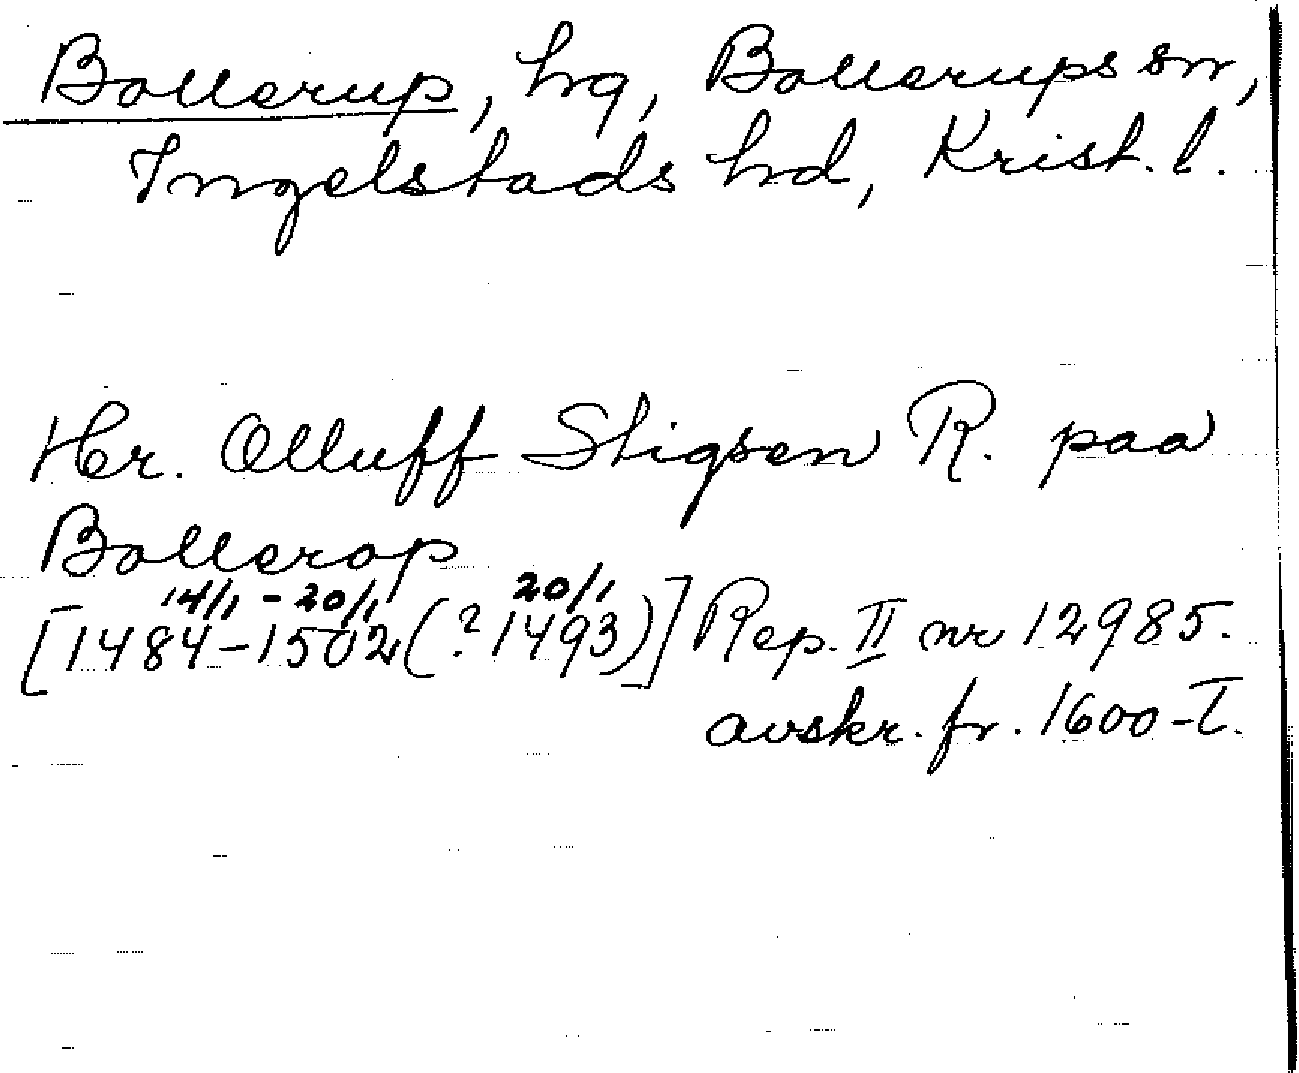 Bollerup, hg, Bollerups sn,
Ingelstads hd, Krist. l.
Her. Olluff Stigsen R. paa
Bollerop
14/1 - 20/1 20/1
[1484-1502(?1493)] Rep. II nr 12985.
avskr. fr. 1600-T.